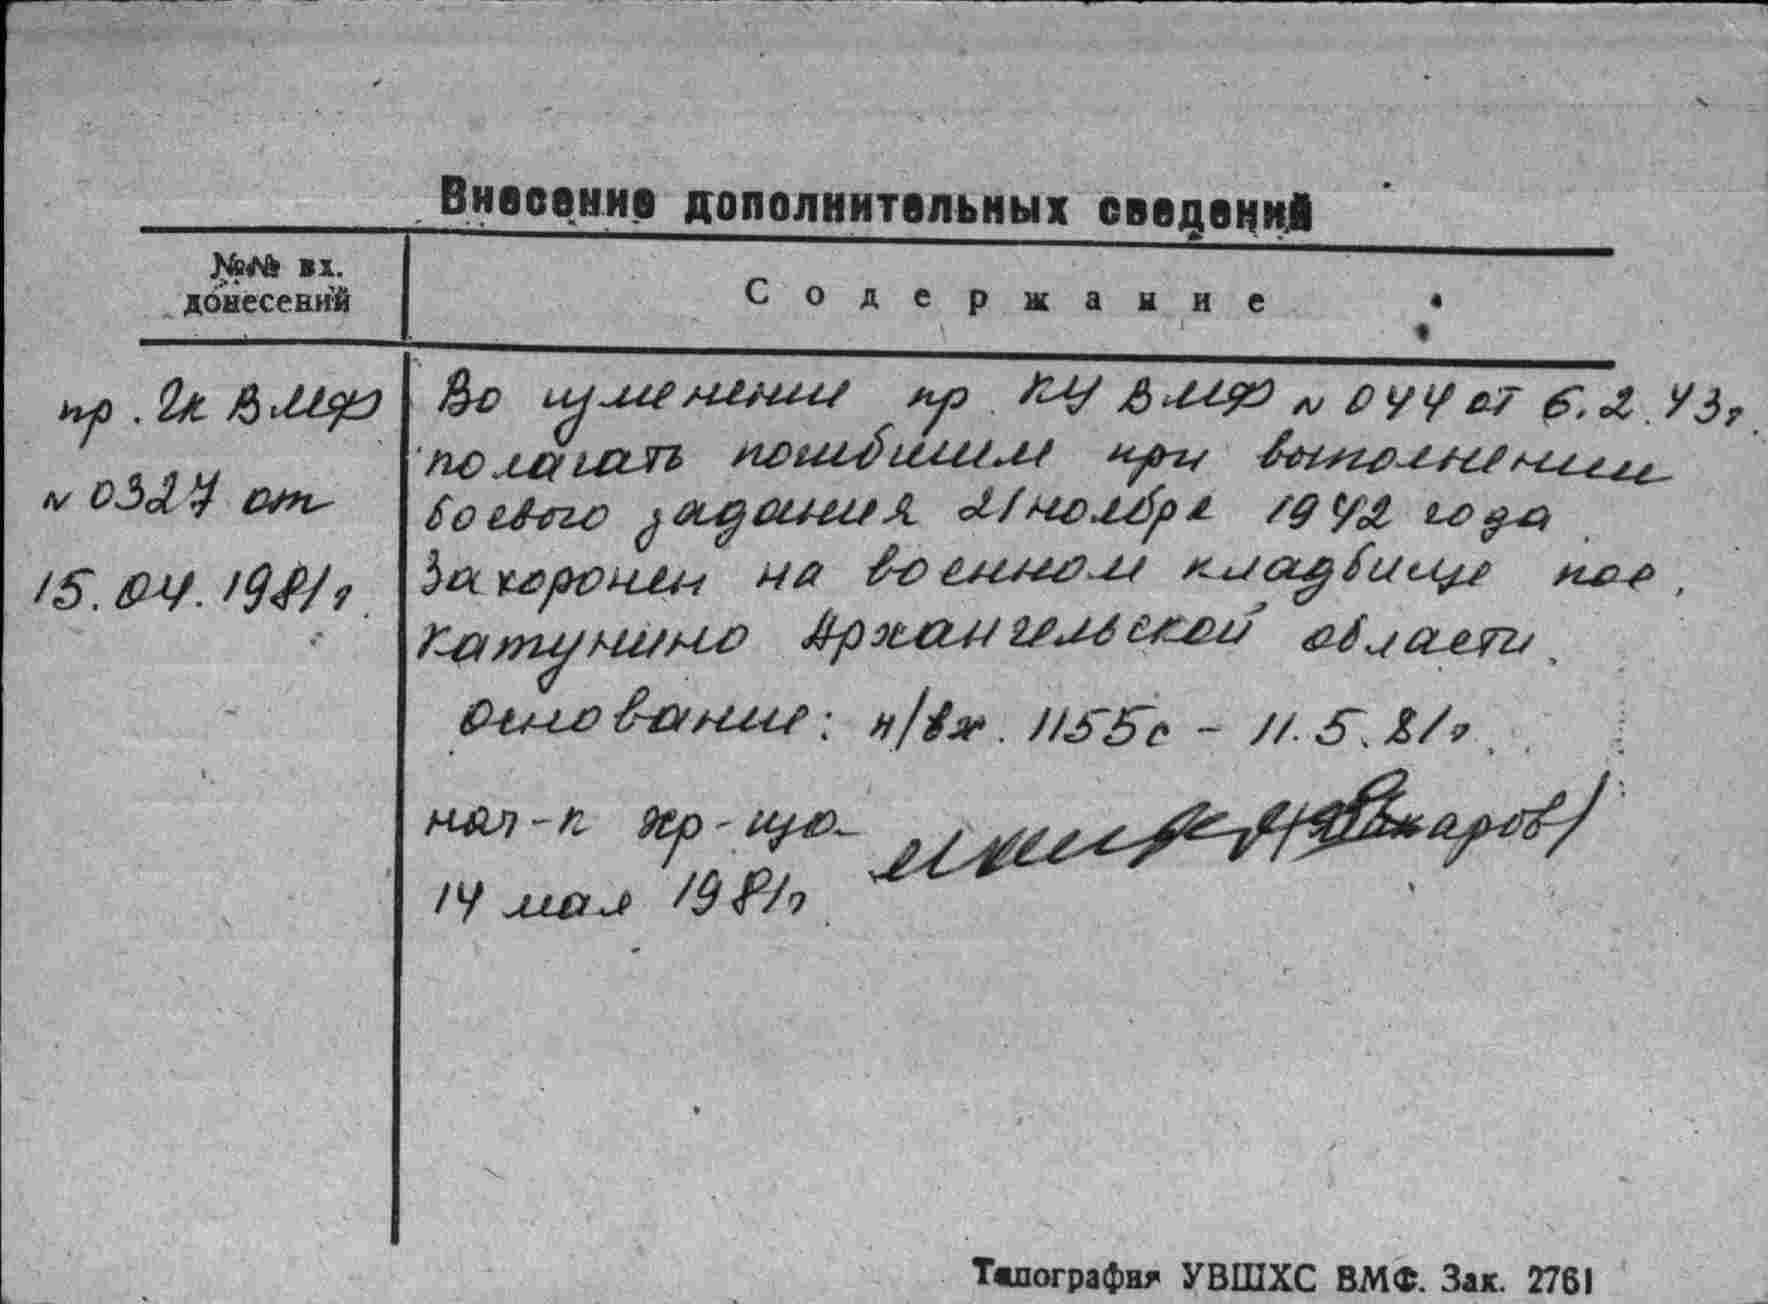 Внесение дополнительных сведений
№№ вх.
донесений
Содержание
пр. Гк ВМФ
N 0327 от
15.04.1981г.
Во изменение пр. КУ ВМФ N 044 от 6.2.43г.
полагать погибшим при выполнении
боевого задания 21 ноября 1942 года
Захоронен на военном кладбище пос.
Катунино Архангельской области.
Основание: н/вх. 1155с - 11.5.81г.
нач-к хр-ща
14 мая 1981г
Типография УВШХС ВМФ. Зак. 2761